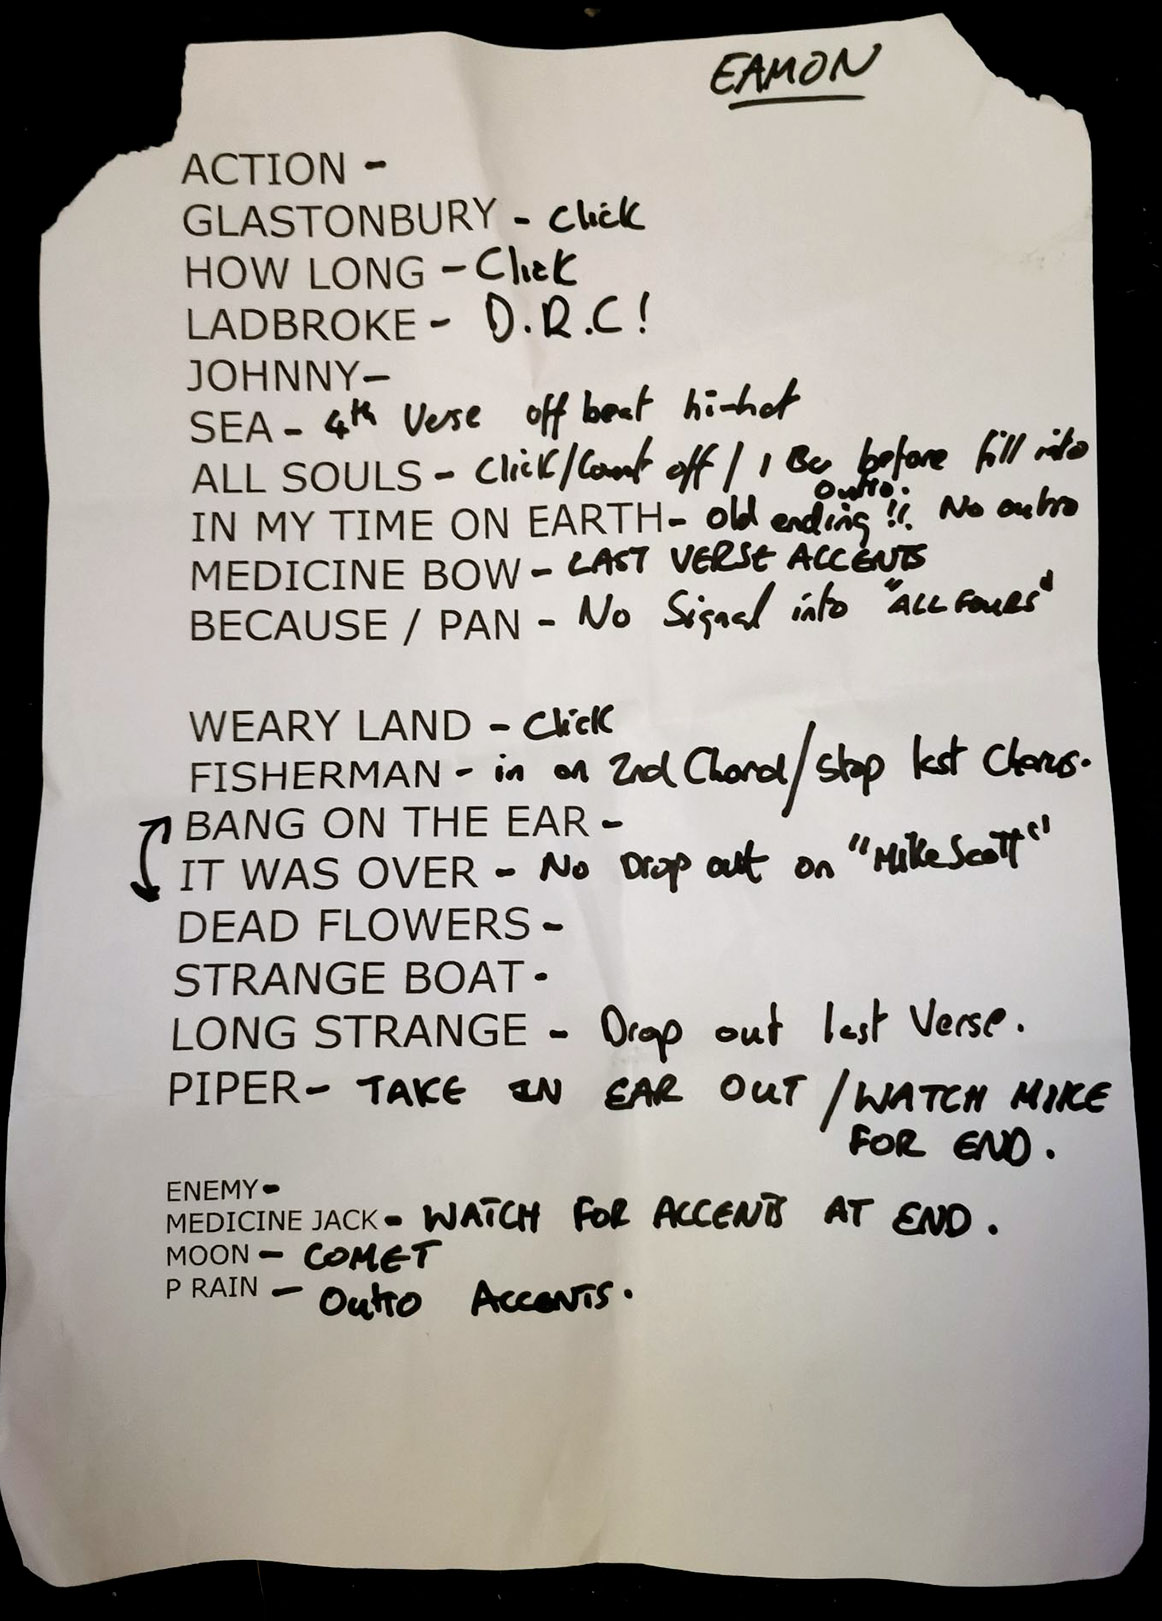 EAMON
ACTION -
GLASTONBURY - Click
HOW LONG - Click
LADBROKE - D.R.C!
JOHNNY-
SEA - 4th Verse off beat hi-hat
ALL SOULS - Click/Count off / 1 Bar before fill into
outro.
IN MY TIME ON EARTH- Old ending!! No outro
MEDICINE BOW - LAST VERSE ACCENTS
BECAUSE / PAN - No Signal into "ALL FOURS"
WEARY LAND - Click
FISHERMAN - in on 2nd Chord/stop last Chorus.
BANG ON THE EAR -
IT WAS OVER - No Drop out on "Mike Scott"
DEAD FLOWERS -
STRANGE BOAT -
LONG STRANGE - Drop out last Verse.
PIPER- TAKE IN EAR OUT / WATCH MIKE
FOR END.
ENEMY-
MEDICINE JACK- WATCH FOR ACCENTS AT END.
MOON - COMET
P RAIN - Outro Accents.